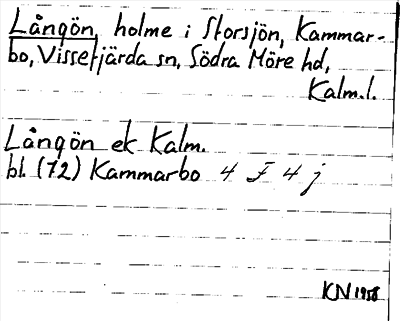 Långön, holme i Storsjön, Kammar-
bo, Vissefjärda sn, Södra Möre hd,
Kalm.l.
Långön ek Kalm.
bl. (72) Kammarbo 4 F 4 j
KN 1958